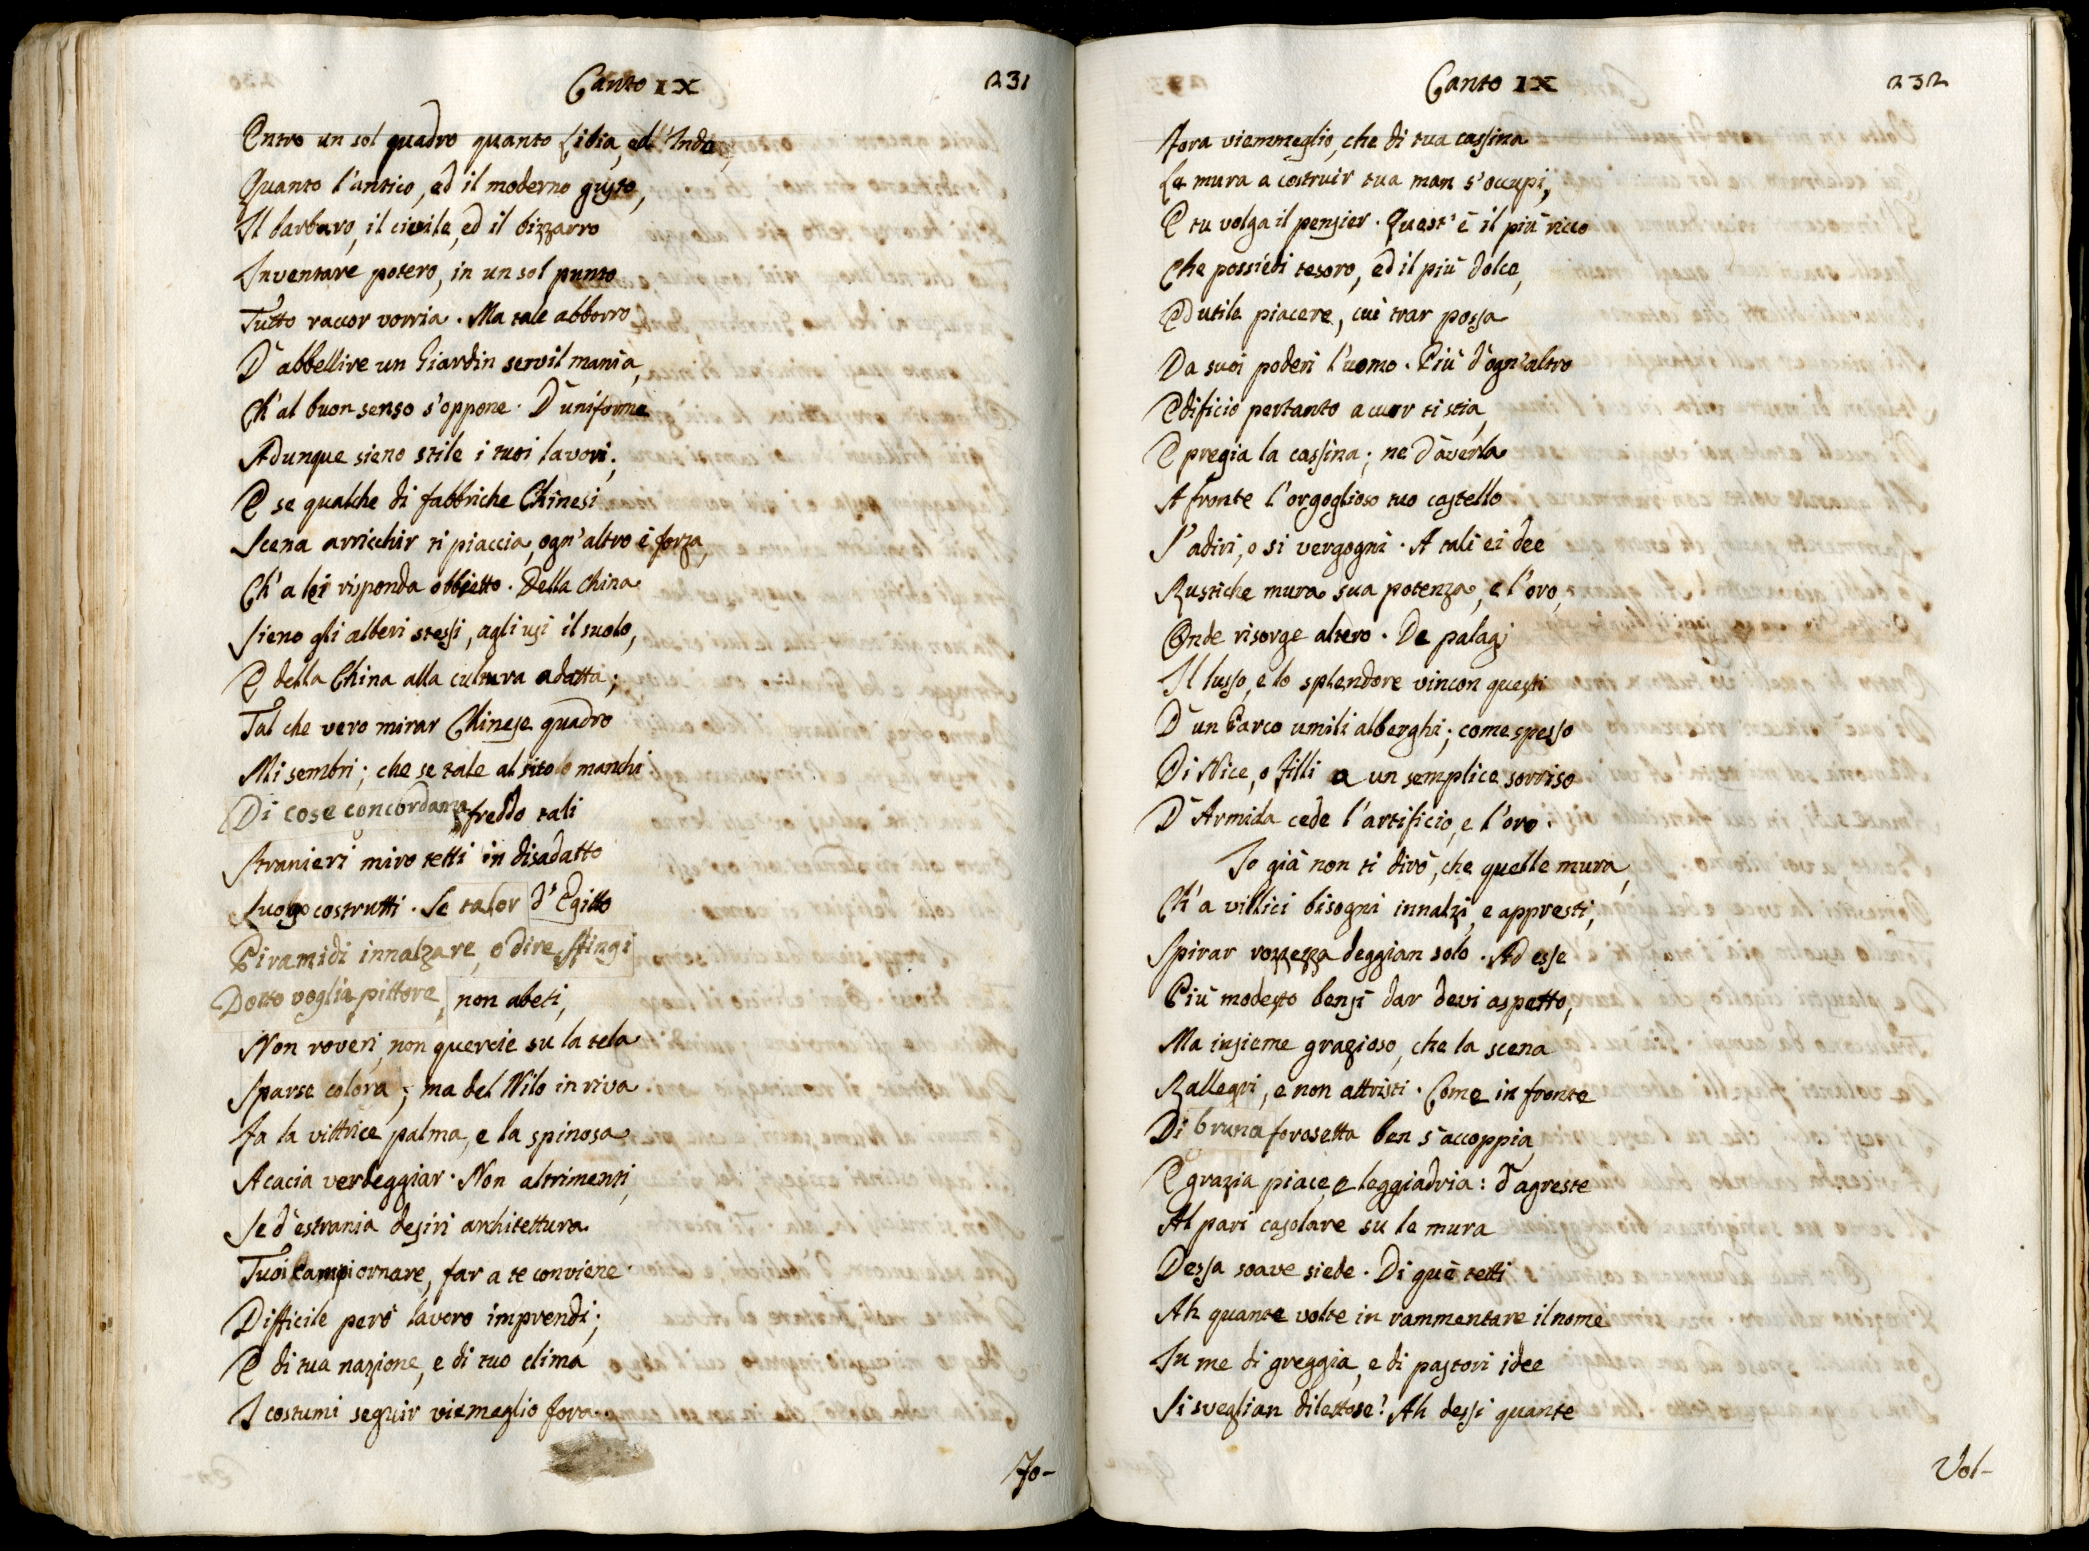 Canto IX
231
Entro un sol quadro quanto Libia, ed l'Indo,
Quanto l'antico, ed il moderno gusto,
Il barbaro, il civile, ed il bizzarro
Inventare potero, in un sol punto
Tutto raccor vorria. Ma tale abborro
D'abbellire un Giardin servil mania,
Ch'al buon senso s'oppone. D'uniforme
Adunque sieno stile i tuoi lavori;
E se qualche di fabbriche Chinesi
Scena arricchir ti piaccia, ogn'altro è forza,
Ch'a lei risponda obbietto. Della China
Sieno gli alberi stessi, agli usi il suolo,
E della China alla cultura adatta;
Tal che vero mirar Chinese quadro
Mi sembri; che se tale al sito manchi
Di cose concordanza, freddo tali
Stranieri miro tetti in disadatto
Luogo costrutti. Se talor d'Egitto
Piramidi innalzare, o dire Sfingi
Dotto voglia pittore, non abeti,
Non roveri, non quercie su la tela
Sparse colora; ma del Nilo in riva
Fa la vittrice palma, e la spinosa
Acacia verdeggiar. Non altrimenti,
Se d'estrania desiri architettura
Tuoi campi ornare, far a te conviene.
Difficile però lavoro imprendi;
E di tua nazione, e di tuo clima
I costumi seguir viemeglio fora.
Fo-
Canto IX
232
Fora viemmeglio, che di tua cassina
Le mura a costruir tua man s'occupi,
E tu volga il pensier. Quest'è il più ricco
Che possiedi tesoro, ed il più dolce,
Ed utile piacere, cui trar possa
Da suoi poderi l'uomo. Più d'ogn'altro
Edificio pertanto a cuor ti stia,
E pregia la cassina; ne d'averla
A fronte l'orgoglioso tuo castello
S'adiri, o si vergogni. A tali ei dee
Rustiche mura sua potenza, e l'oro,
Onde risorge altero. De palagi
Il lusso, e lo splendore vincon questi
D'un Parco umili alberghi; come spesso
Di Nice, o Filli a un semplice sorriso
D'Armida cede l'artificio, e l'oro.
Io già non ti dirò, che quelle mura,
Ch'a villici bisogni innalzi, e appresti,
Spirar rozzezza deggian solo. Ad esse
Più modesto bensì dar devi aspetto,
Ma insieme grazioso, che la scena
Rallegri, e non attristi. Come in fronte
Di bruna forosetta ben s'accoppia,
E grazia piace, e leggiadria: d'agreste
Al pari casolare su le mura
Dessa soave siede. Di què tetti
Ah quante volte in rammentare il nome
In me di greggia, e di pastori idee
Si sveglian dilettose! Ah dessi quante
Vol-